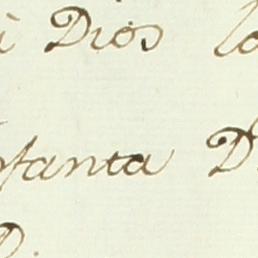 à Dios lo
nfanta D.
D.